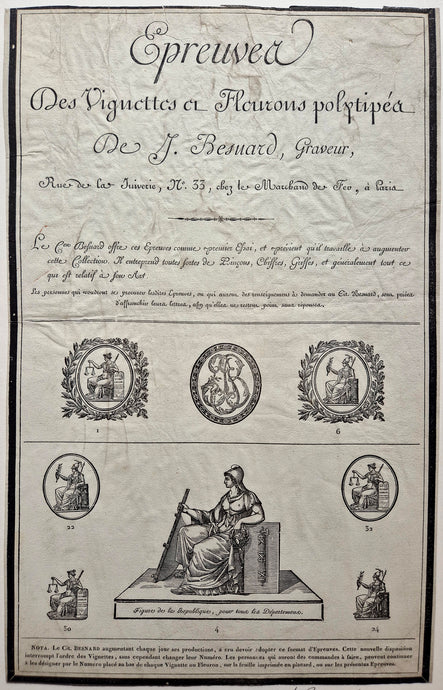 Epreuves
Des Vignettes et Fleurons polytipés
De J. Besnard, Graveur,
Rue de la Juiverie, N.º 33, chez le Marchand de Fer, à Paris
Le C.en Besnard offre ces Epreuves comme premier Essai, et prévient qu'il travaille à augmenter
cette Collection. Il entreprend toutes sortes de Poinçons, Chiffres, Griffes, et généralement tout ce
qui est relatif à son Art.
Les personnes qui voudront se procurer lesdites Epreuves, ou qui auront des renseignemens à demander au Cit. Besnard, sont priées
d'affranchir leurs lettres, afin qu'elles ne restent point sans réponses.
1
6
22
32
Figures de la République, pour tous les Départemens.
30
4
24
NOTA. Le Cit. BESNARD augmentant chaque jour ses productions, a cru devoir adopter ce format d'Epreuves. Cette nouvelle disposition
interrompt l'ordre des Vignettes, sans cependant changer leur Numéro. Les personnes qui auront des commandes à faire, peuvent continuer
à les désigner par le Numéro placé au bas de chaque Vignette ou Fleuron, sur la feuille imprimée en placard, ou sur les présentes Epreuves.